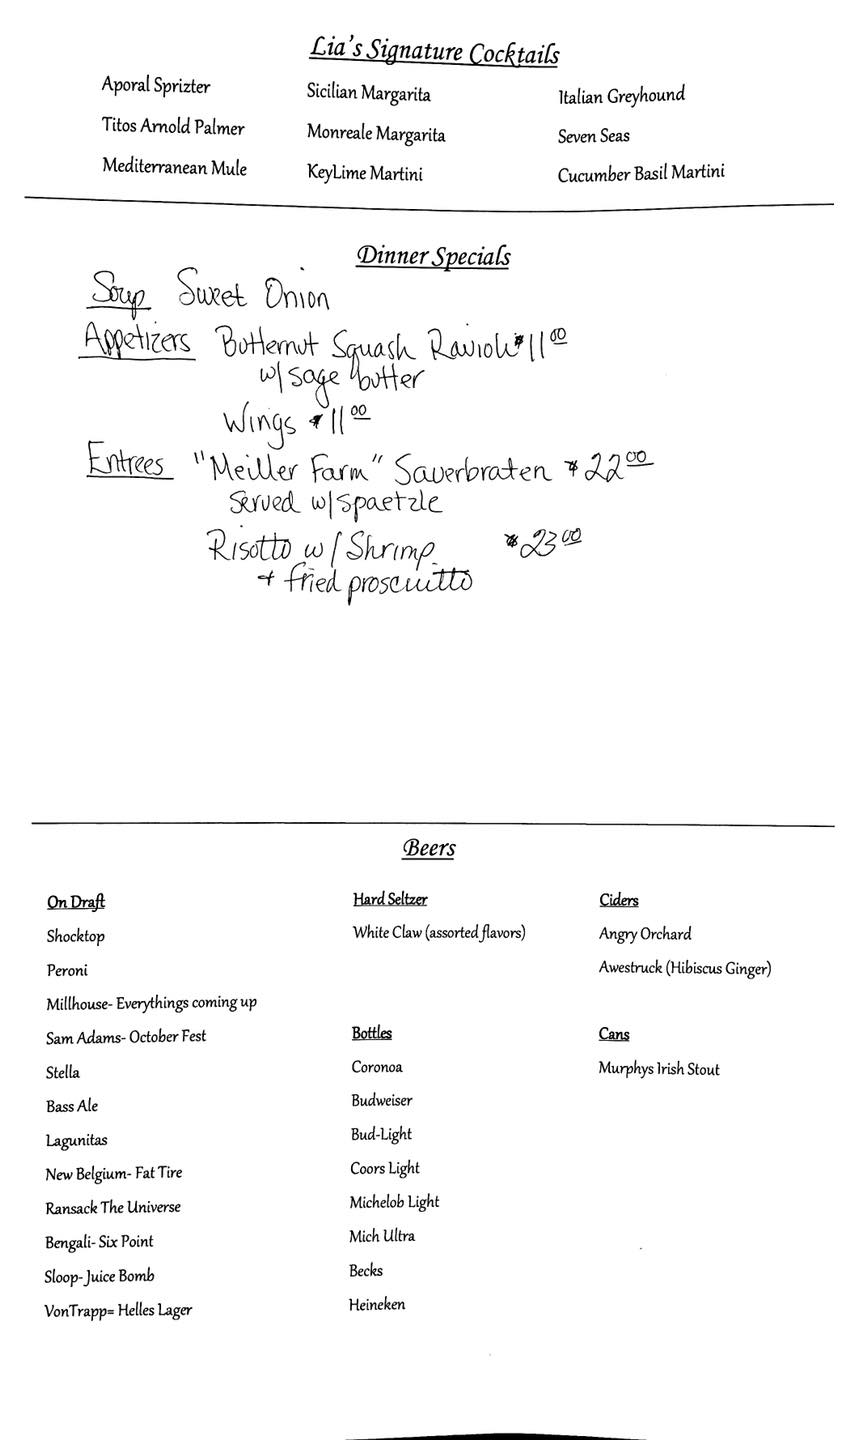 Lia's Signature Cocktails
Aporal Sprizter
Sicilian Margarita
Italian Greyhound
Titos Arnold Palmer
Monreale Margarita
Seven Seas
Mediterranean Mule
KeyLime Martini
Cucumber Basil Martini
Dinner Specials
Soup Sweet Onion
Appetizers Butternut Squash Ravioli $11.00
w/ sage butter
Wings $11.00
Entrees "Meiller Farm" Sauerbraten $22.00
Served w/ spaetzle
Risotto w/ Shrimp $23.00
+ fried proscuitto
Beers
On Draft
Shocktop
Peroni
Millhouse- Everythings coming up
Sam Adams- October Fest
Stella
Bass Ale
Lagunitas
New Belgium- Fat Tire
Ransack The Universe
Bengali- Six Point
Sloop- Juice Bomb
VonTrapp= Helles Lager
Hard Seltzer
White Claw (assorted flavors)
Bottles
Coronoa
Budweiser
Bud-Light
Coors Light
Michelob Light
Mich Ultra
Becks
Heineken
Ciders
Angry Orchard
Awestruck (Hibiscus Ginger)
Cans
Murphys Irish Stout